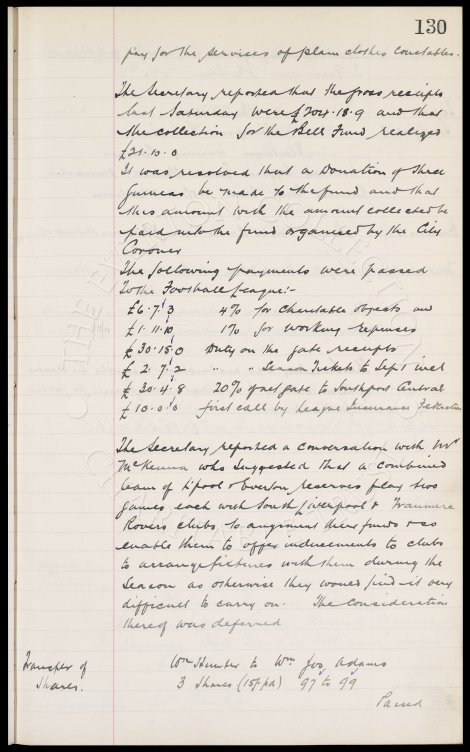 130
pay for the services of plain clothes Constables.
The Secretary reported that the gross receipts
last Saturday were £704.18.9 and that
the collection for the Bell Fund realized
£21.10.0
It was resolved that a Donation of three
Guineas be made to the fund and that
this amount with the amount collected be
paid into the fund organised by the City
Coroner
The following payments were passed
To the Football League:-
£6.7.3 4% for Charitable objects and
£1.11.10 1% for working Expenses
£30.18.0 Duty on the gate receipts
£2.7.2 " " Season Tickets to Sep 1 incl
£30.4.8 20% of net gate to Southport Central
£10.0.0 first call by League Insurance Federation
The Secretary reported a conversation with Mr
McKenna who suggested that a combined
team of L'pool & Everton reserves play two
games each with South Liverpool & Tranmere
Rovers clubs to augment their funds & so
enable them to offer inducements to clubs
to arrange fixtures with them during the
Season as otherwise they would find it very
difficult to carry on. The consideration
thereof was deferred
Transfer of Wm Humber to Wm Jos Adams
Shares. 3 Shares (15/- pd) 97 to 99
Passed